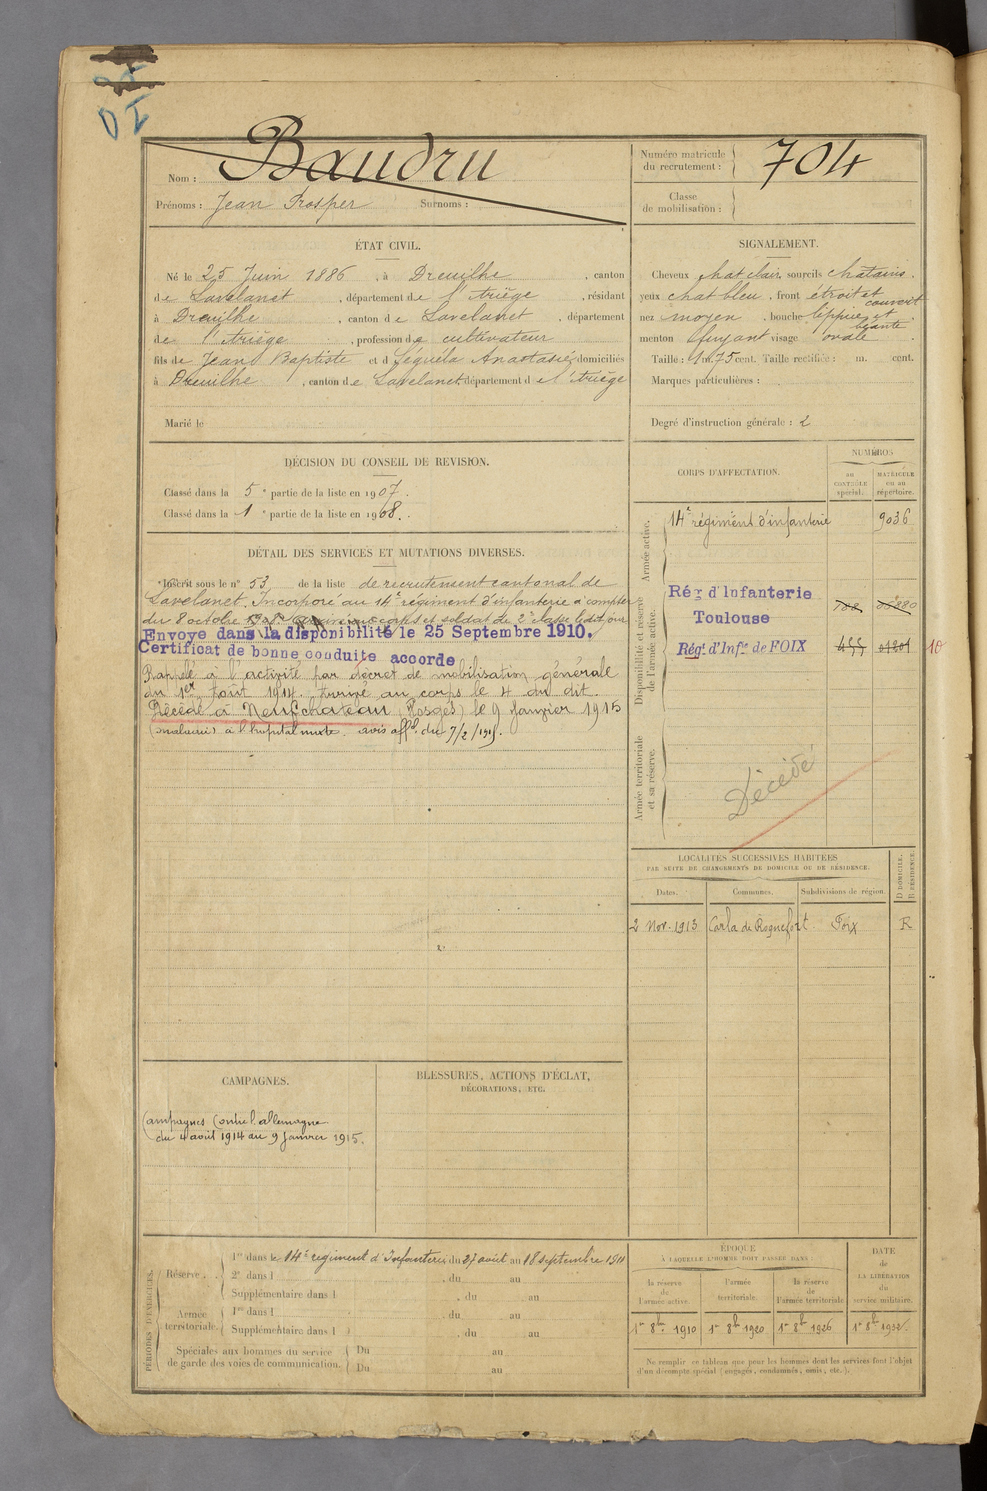 DI
Nom : Baudru
Prénoms : Jean Prosper Surnoms :
Numéro matricule du recrutement : 704
Classe de mobilisation :
ÉTAT CIVIL.
Né le 25 Juin 1886, à Dreuilhe, canton
de Lavelanet, département de l'Ariège, résidant
à Dreuilhe, canton de Lavelanet, département
de l'Ariège, profession de cultivateur
fils de Jean Baptiste et d Séguéla Anastasie, domiciliés
à Dreuilhe, canton de Lavelanet, département de l'Ariège
Marié le
SIGNALEMENT.
Cheveux chat clair, sourcils chatains.
yeux chat bleu, front étroit et couvert
nez moyen, bouche lippue et béante
menton fuyant visage ovale.
Taille : 1 m. 75 cent. Taille rectifiée : m. cent.
Marques particulières :
Degré d'instruction générale : 2
DÉCISION DU CONSEIL DE REVISION.
Classé dans la 5e partie de la liste en 1907.
Classé dans la 1e partie de la liste en 1908.
DÉTAIL DES SERVICES ET MUTATIONS DIVERSES.
Inscrit sous le n° 53 de la liste de recrutement cantonal de
Lavelanet. Incorporé au 14e régiment d'infanterie à compter
du 8 octobre 1908. Arrivé au corps et soldat de 2e classe ledit jour
Envoyé dans la disponibilité le 25 Septembre 1910.
Certificat de bonne conduite accordé
Rappelé à l'activité par décret de mobilisation générale
du 1er Août 1914. Arrivé au corps le 4 du dit.
Décédé à Neufchateau (Vosges) le 9 Janvier 1915
(maladie) à l'hopital mixte. avis offel. du 7/2/1915.
CORPS D'AFFECTATION.
NUMÉROS
au CONTRÔLE spécial.
MATRICULE ou au répertoire.
Armée active.
14e régiment d'infanterie 9036
Disponibilité et réserve de l'armée active.
Rég d'Infanterie
Toulouse
Régt d'Infie de FOIX 10
Armée territoriale et sa réserve.
Décédé
LOCALITÉS SUCCESSIVES HABITÉES
PAR SUITE DE CHANGEMENTS DE DOMICILE OU DE RÉSIDENCE.
Dates. Communes. Subdivisions de région. D DOMICILE. R RÉSIDENCE
2 Nov. 1913 Carla de Roquefort Foix R
CAMPAGNES.
Campagnes Contre l'allemagne
du 4 août 1914 au 9 janvier 1915.
BLESSURES, ACTIONS D'ÉCLAT,
DÉCORATIONS, ETC.
PÉRIODES D'EXERCICES.
Réserve. 1re dans le 14e régiment d'Infanterie du 27 août au 18 septembre 1911
2e dans l , du au
Supplémentaire dans l , du au
Armée territoriale. 1re dans l , du au
Supplémentaire dans l , du au
Spéciales aux hommes du service de garde des voies de communication. Du au
Du au
ÉPOQUE
À LAQUELLE L'HOMME DOIT PASSER DANS :
la réserve de l'armée active.
l'armée territoriale.
la réserve de l'armée territoriale
DATE de LA LIBÉRATION du service militaire.
1er 8bre 1910 1er 8bre 1920 1er 8bre 1926 1er 8bre 1932.
Ne remplir ce tableau que pour les hommes dont les services font l'objet
d'un décompte spécial (engagés, condamnés, omis, etc.).